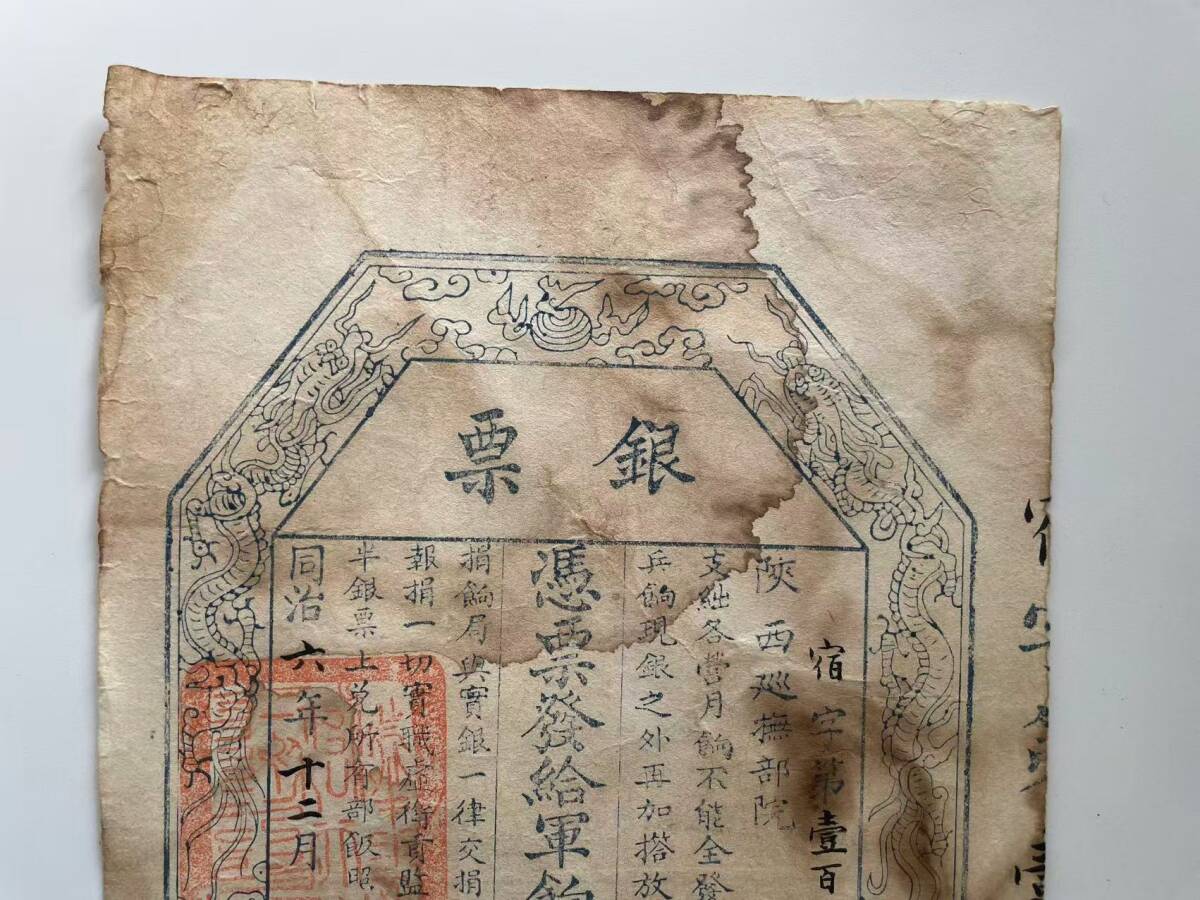 銀票
宿字第壹百
陝西廵撫部院
支絀各營月餉不能全發
兵餉現銀之外再加搭放
憑票發給軍餉
捐餉局與實銀一律交捐
報捐一切實職虛銜貢監
半銀票上兌所有部飯照
同治六年十二月